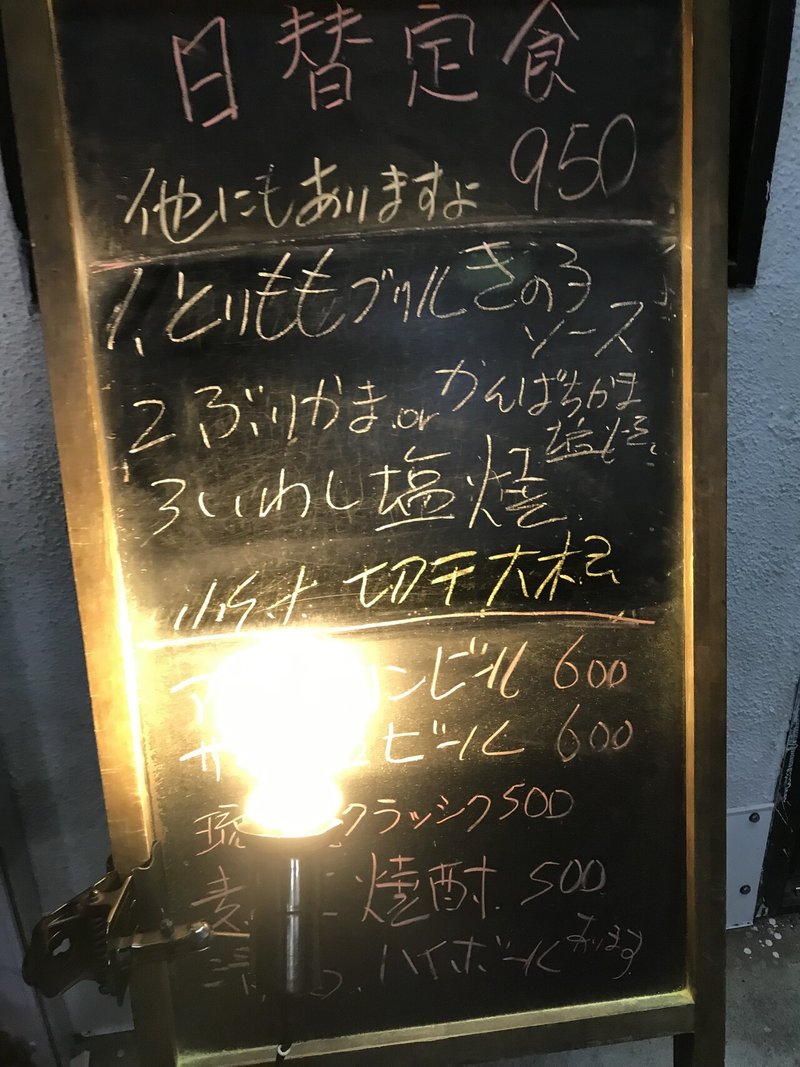 日替定食
950
他にもありますよ
1、とりももグリルきの子
ソース
2 ぶりかま or かんぱちかま
塩焼
3 いわし塩焼
小鉢 切干大根
ンビール 600
ビール 600
琉 クラッシク 500
麦 焼酎 500
ハイボール あります